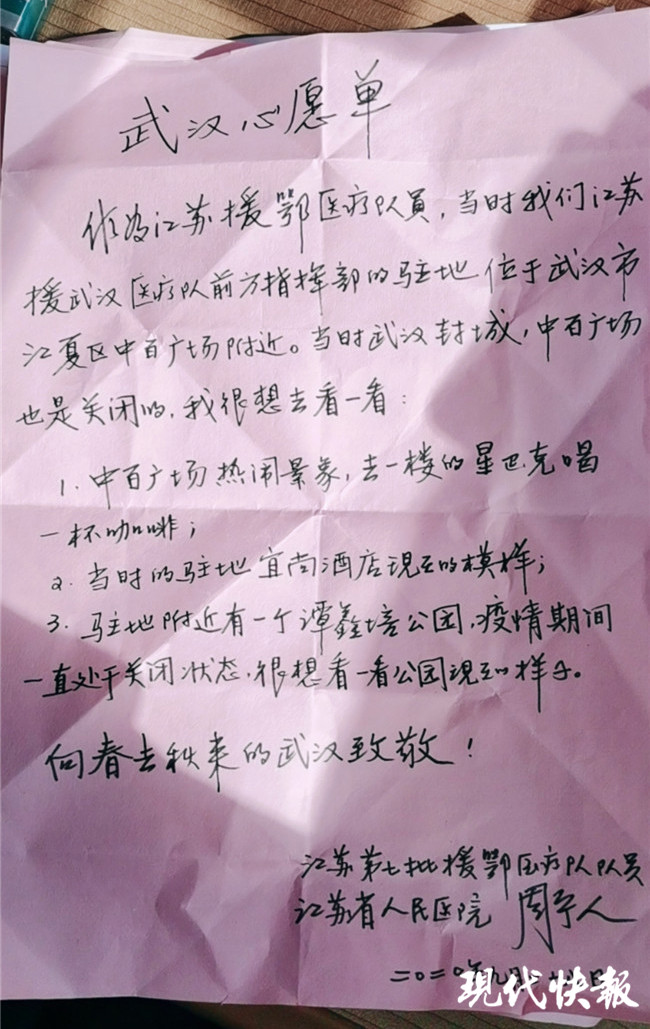 武汉心愿单
作为江苏援鄂医疗队队员，当时我们江苏
援武汉医疗队前方指挥部的驻地位于武汉市
江夏区中百广场附近。当时武汉封城，中百广场
也是关闭的，我很想去看一看：
1. 中百广场热闹景象，去一楼的星巴克喝
一杯咖啡；
2. 当时的驻地宜尚酒店现在的模样；
3. 驻地附近有一个谭鑫培公园，疫情期间
一直处于关闭状态，很想看一看公园现在的样子。
向春去秋来的武汉致敬！
江苏第七批援鄂医疗队队员
江苏省人民医院 周宁人
二〇二〇年九月
现代快报